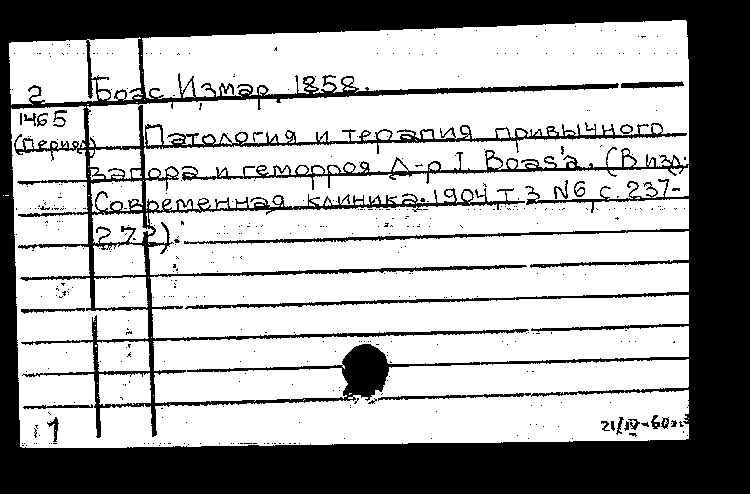 2 Боас, Измар, 1858.
1465
(Период) Патология и терапия привычного
запора и геморроя Д-р I. Boas'а. (В изд:
Современная клиника. 1904 т. 3 N6, с. 237-
272).
1
21/IV-60г.